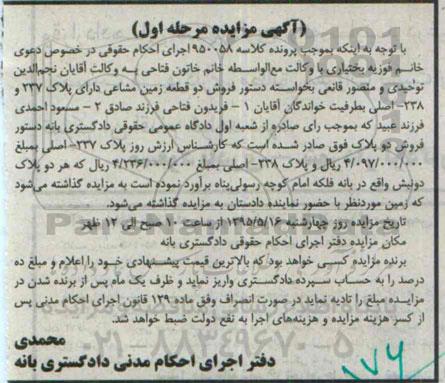 (آگهی مزایده مرحله اول)
با توجه به اینکه بموجب پرونده کلاسه ۹۵۰۰۵۸ اجرای احکام حقوقی در خصوص دعوی
خانم فوزیه بختیاری با وکالت مع‌الواسطه خانم خاتون فتاحی به وکالت آقایان نجم‌الدین
توحیدی و منصور قانعی بخواسته دستور فروش دو قطعه زمین مشاعی دارای پلاک ۲۳۷ و
۲۳۸- اصلی بطرفیت خواندگان آقایان ۱ - فریدون فتاحی فرزند صادق ۲ - مسعود احمدی
فرزند عبید که بموجب رای صادره از شعبه اول دادگاه عمومی حقوقی دادگستری بانه دستور
فروش دو پلاک فوق صادر شده است که کارشناس ارزش روز پلاک ۲۳۷- اصلی بمبلغ
۴/۰۹۷/۰۰۰/۰۰۰ ریال و پلاک ۲۳۸- اصلی بمبلغ ۴/۲۳۶/۰۰۰/۰۰۰ ریال که هر دو پلاک
دونبش واقع در بانه فلکه امام کوچه رسولی‌پناه برآورد نموده است به مزایده گذاشته می‌شود
که زمین موردنظر با حضور نماینده دادستان به مزایده گذاشته می‌شود.
تاریخ مزایده روز چهارشنبه ۱۳۹۵/۵/۱۶ از ساعت ۱۰ صبح الی ۱۲ ظهر
مکان مزایده دفتر اجرای احکام حقوقی دادگستری بانه
برنده مزایده کسی خواهد بود که بالاترین قیمت پیشنهادی خود را اعلام و مبلغ ده
درصد را به حساب سپرده دادگستری واریز نماید و ظرف یک ماه پس از برنده شدن در
مزایده مبلغ را تادیه نماید در صورت انصراف وفق ماده ۱۲۹ قانون اجرای احکام مدنی پس
از کسر هزینه مزایده و هزینه‌های اجرا به نفع دولت ضبط خواهد شد.
محمدی
دفتر اجرای احکام مدنی دادگستری بانه
۰۲۱-۸۸۳۴۹۶۷۰-۵
۱۷۶